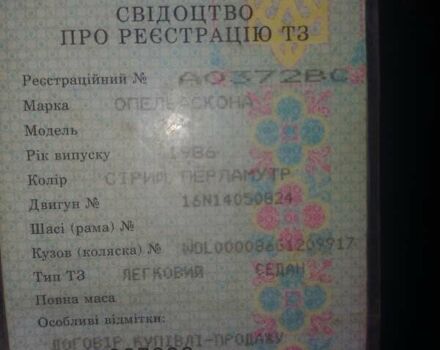 СВІДОЦТВО
ПРО РЕЄСТРАЦІЮ ТЗ
Реєстраційний № АО372ВС
Марка ОПЕЛЬ АСКОНА
Модель
Рік випуску 1986
Колір СІРИЙ ПЕРЛАМУТР
Двигун № 16N14050824
Шасі (рама) №
Кузов (коляска) №
Тип ТЗ ЛЕГКОВИЙ СЕДАН
Повна маса
Особливі відмітки:
ДОГОВІР КУПІВЛІ-ПРОДАЖУ